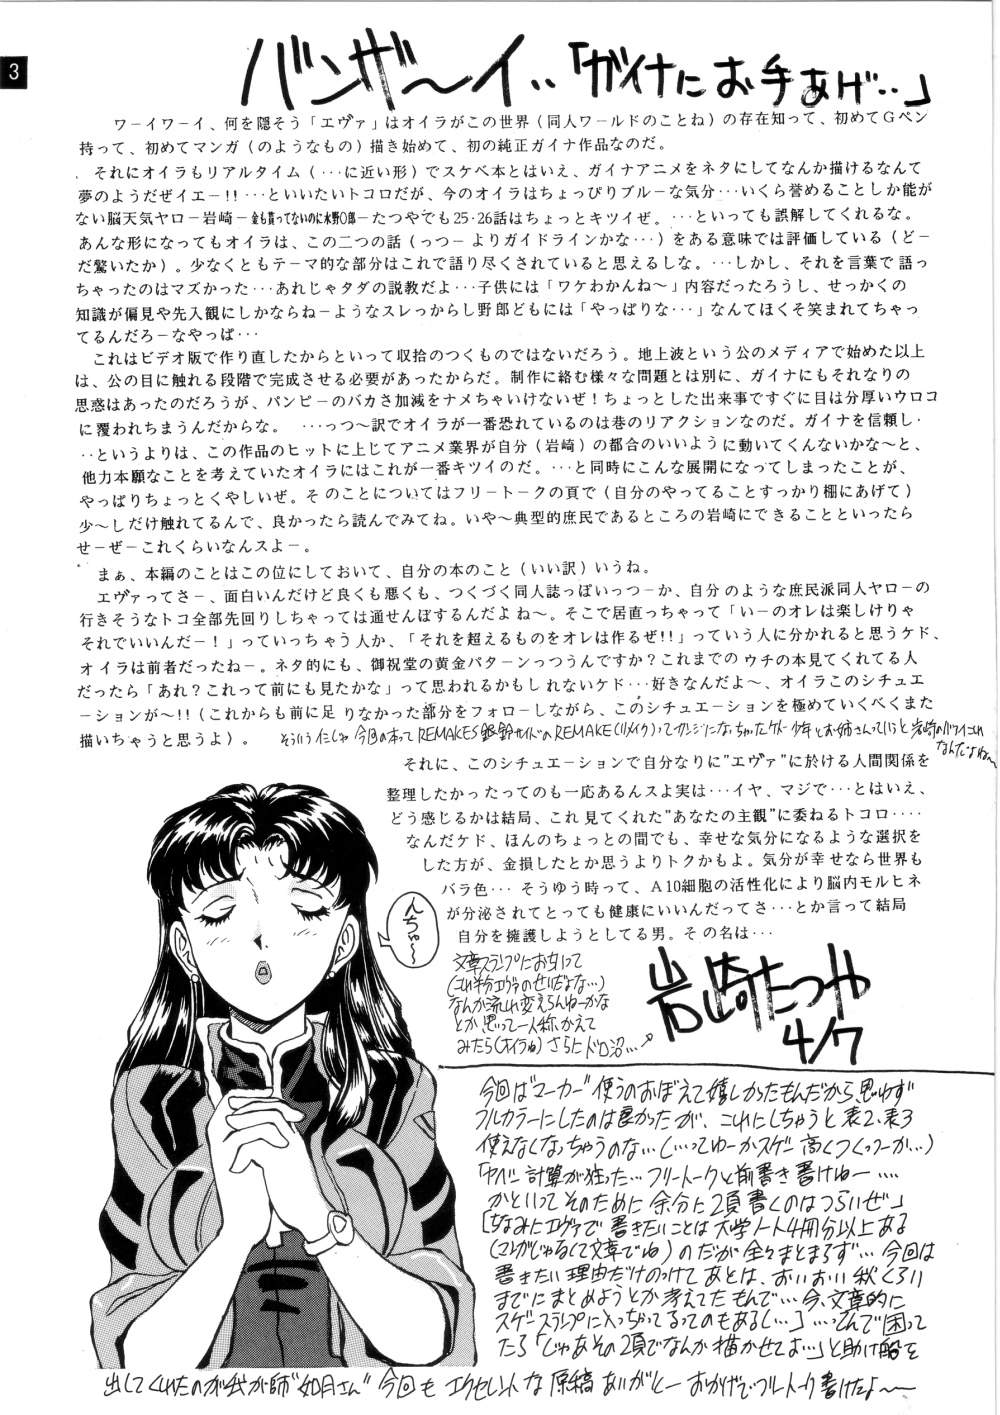 3
バンザ〜イ‥「ガイナにお手あげ‥」
ワーイワーイ、何を隠そう「エヴァ」はオイラがこの世界（同人ワールドのことね）の存在知って、初めてGペン
持って、初めてマンガ（のようなもの）描き始めて、初の純正ガイナ作品なのだ。
それにオイラもリアルタイム（‥‥に近い形）でスケベ本とはいえ、ガイナアニメをネタにしてなんか描けるなんて
夢のようだぜイエー!! ‥‥といいたいトコロだが、今のオイラはちょっぴりブルーな気分‥‥いくら誉めることしか能が
ない脳天気ヤロー岩崎ー金も貰ってないのに水野〇郎ーたつやでも25・26話はちょっとキツイぜ。‥‥といっても誤解してくれるな。
あんな形になってもオイラは、この二つの話（っつーよりガイドラインかな‥‥）をある意味では評価している（どー
だ驚いたか）。少なくともテーマ的な部分はこれで語り尽くされていると思えるしな。‥‥しかし、それを言葉で語っ
ちゃったのはマズかった‥‥あれじゃタダの説教だよ‥‥子供には「ワケわかんね〜」内容だったろうし、せっかくの
知識が偏見や先入観にしかならねーようなスレっからし野郎どもには「やっぱりな‥‥」なんてほくそ笑まれてちゃっ
てるんだろーなやっぱ‥‥
これはビデオ版で作り直したからといって収拾のつくものではないだろう。地上波という公のメディアで始めた以上
は、公の目に触れる段階で完成させる必要があったからだ。制作に絡む様々な問題とは別に、ガイナにもそれなりの
思惑はあったのだろうが、パンピーのバカさ加減をナメちゃいけないぜ！ちょっとした出来事ですぐに目は分厚いウロコ
に覆われちまうんだからな。 ‥‥っつ〜訳でオイラが一番恐れているのは巷のリアクションなのだ。ガイナを信頼し‥
‥というよりは、この作品のヒットに上じてアニメ業界が自分（岩崎）の都合のいいように動いてくんないかな〜と、
他力本願なことを考えていたオイラにはこれが一番キツイのだ。‥‥と同時にこんな展開になってしまったことが、
やっぱりちょっとくやしいぜ。そのことについてはフリートークの頁で（自分のやってることすっかり棚にあげて）
少〜しだけ触れてるんで、良かったら読んでみてね。いや〜典型的庶民であるところの岩崎にできることといったら
せーぜーこれくらいなんスよー。
まぁ、本編のことはこの位にしておいて、自分の本のこと（いい訳）いうね。
エヴァってさー、面白いんだけど良くも悪くも、つくづく同人誌っぽいっつーか、自分のような庶民派同人ヤローの
行きそうなトコ全部先回りしちゃっては通せんぼするんだよね〜。そこで居直っちゃって「いーのオレは楽しけりゃ
それでいいんだー！」っていっちゃう人か、「それを超えるものをオレは作るぜ!!」っていう人に分かれると思うケド、
オイラは前者だったねー。ネタ的にも、御祝堂の黄金パターンっつうんですか？これまでのウチの本見てくれてる人
だったら「あれ？これって前にも見たかな」って思われるかもしれないケド‥‥好きなんだよ〜、オイラこのシチュエ
ーションが〜!!（これからも前に足りなかった部分をフォローしながら、このシチュエーションを極めていくべくまた
描いちゃうと思うよ）。 そういうイミじゃ今回の本ってREMAKES銀鈴サイドのREMAKE（リメイク）ってカンジになっちゃったケドー少年とお姉さんっていうと岩崎の
なんだよね〜
それに、このシチュエーションで自分なりに"エヴァ"に於ける人間関係を
整理したかったってのも一応あるんスよ実は‥‥イヤ、マジで‥‥とはいえ、
どう感じるかは結局、これ見てくれた"あなたの主観"に委ねるトコロ‥‥
なんだケド、ほんのちょっとの間でも、幸せな気分になるような選択を
した方が、金損したとか思うよりトクかもよ。気分が幸せなら世界も
バラ色‥‥ そうゆう時って、A10細胞の活性化により脳内モルヒネ
が分泌されてとっても健康にいいんだってさ‥‥とか言って結局
自分を擁護しようとしてる男。その名は‥‥
んちゅ〜
岩崎たつや
4/7
文章スランプにおちいって
（これ半分エヴァのせいだよな…）
なんか流れ変えらんねーかな
とか思って一人称かえて
みたら（オイラね）さらにドロ沼…
今回はマーカー使うのおぼえて嬉しかったもんだから思わず
フルカラーにしたのは良かったが、これにしちゃうと表2、表3
使えなくなっちゃうのな…（…ってゆーかスゲー高くつくっつーか…）
「ヤベー計算が狂った…フリートークと前書き書けねー…
かといってそのために余分に2頁書くのはつらいぜ」
［ちなみにエヴァで書きたいことは大学ノート4冊分以上ある
（マンガじゃなくて文章でね）のだが全々まとまらず…今回は
書きたい理由だけのっけてあとは、おいおい秋くらい
までにまとめようとか考えてたもんで…今、文章的に
スゲースランプに入っちゃってるってのもあるし…］…てんで困って
たら「じゃあその2頁でなんか描かせてよ…」と助け船を
出してくれたのが我が師"如月さん"今回もエクセレントな原稿ありがとーおかげでフリートーク書けたよ〜